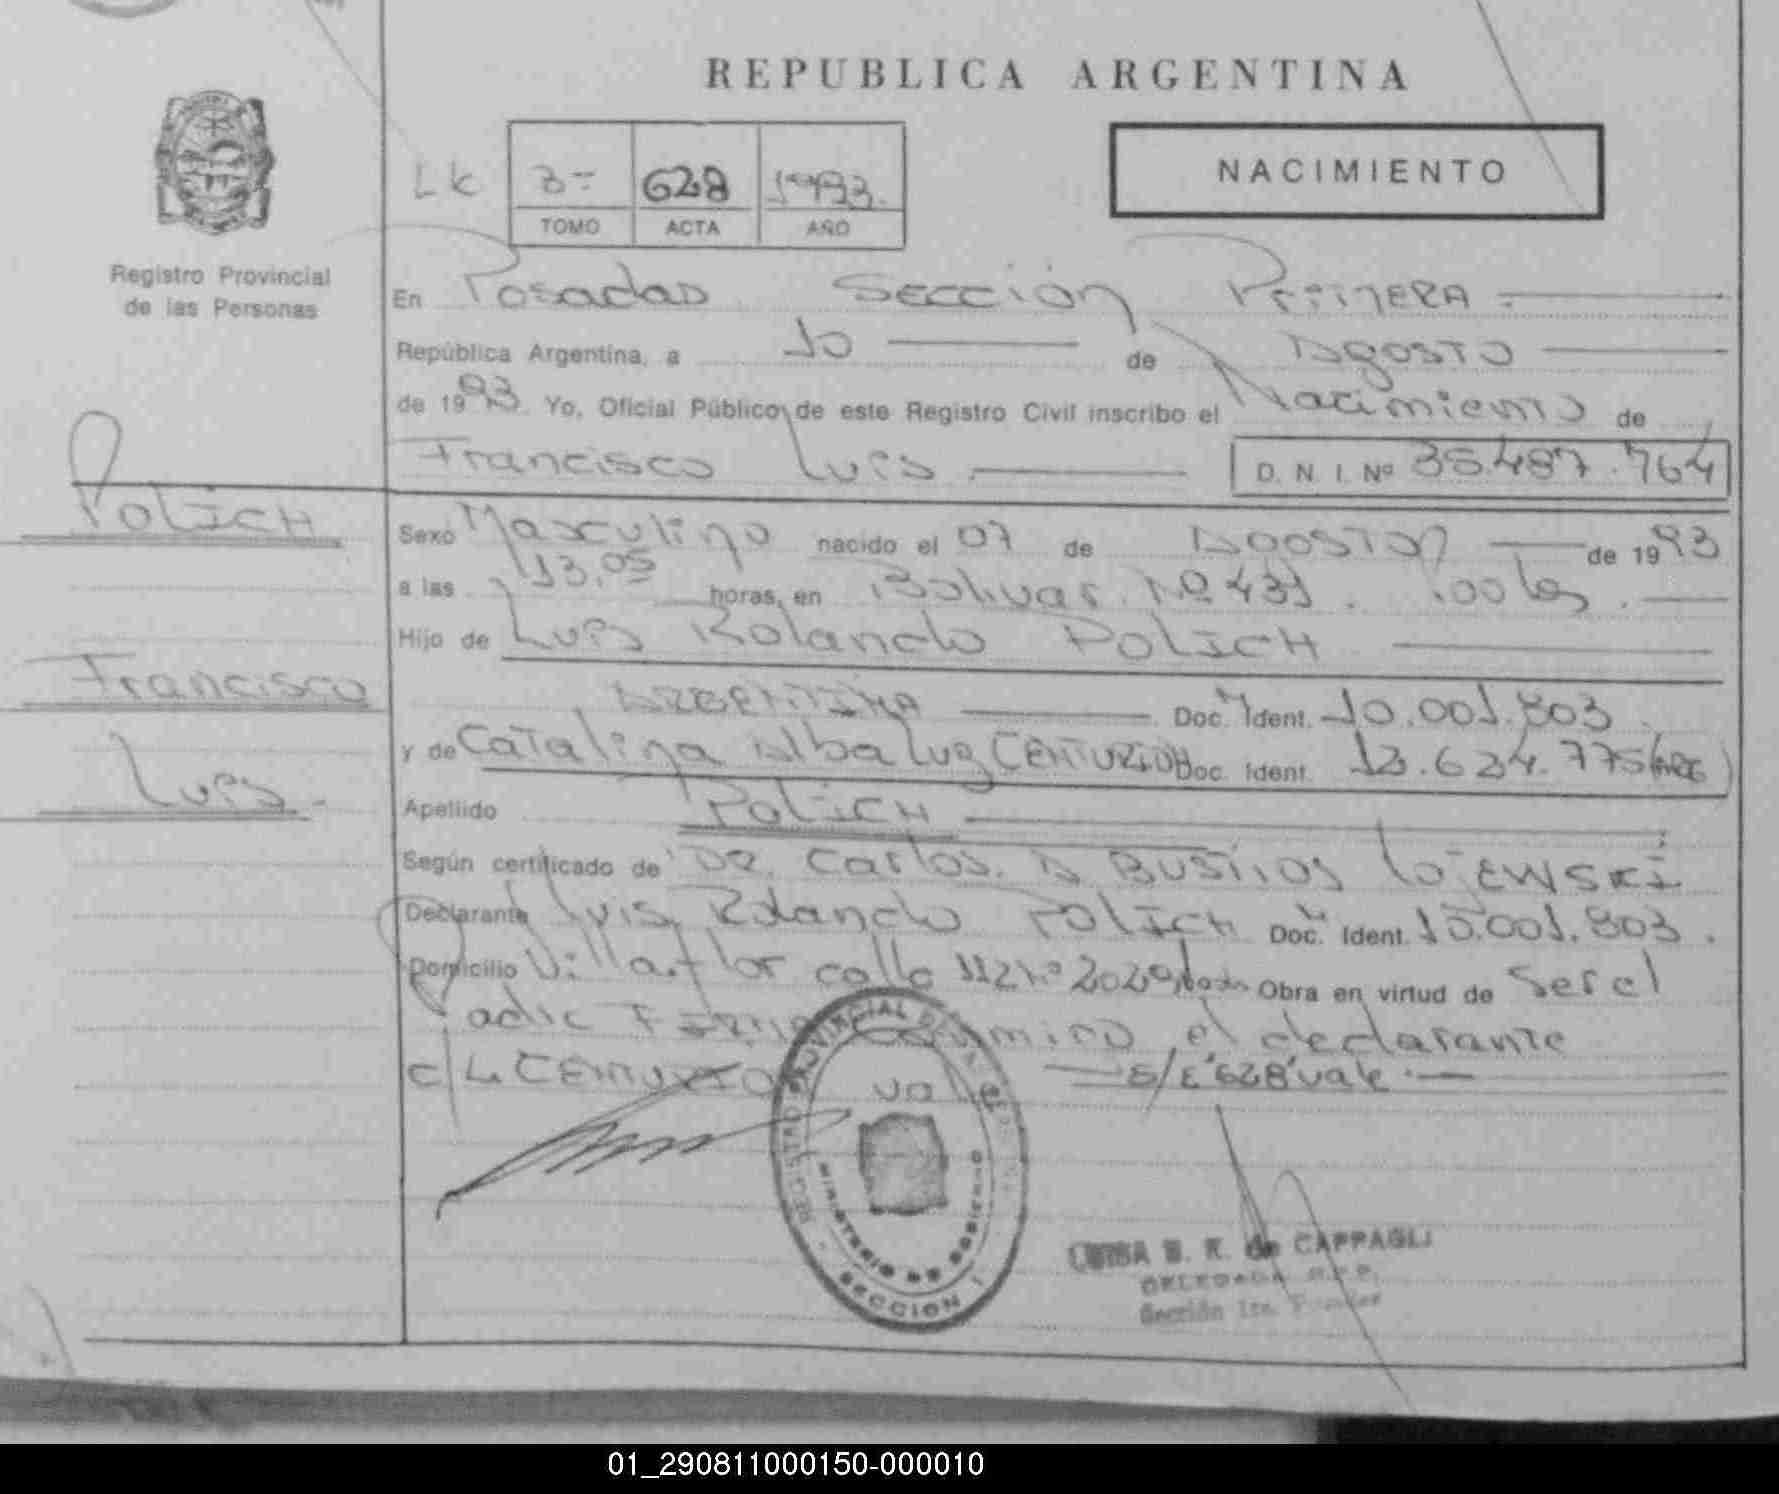 REPUBLICA ARGENTINA
NACIMIENTO
3= 628 1993.
TOMO ACTA AÑO
Registro Provincial
de las Personas
En Posadas Sección Primera
República Argentina, a 10 de Agosto
de 1993. Yo, Oficial Público de este Registro Civil inscribo el Nacimiento de
Francisco Luis
D. N. I. Nº 38.487.764
POLICH
Francisco
Luis.
Sexo Masculino nacido el 07 de AGOSTO de 1993
a las 13,05 horas, en Bolivar Nº 431.
Hijo de Luis Rolando POLICH
ARGENTINA Doc. Ident. 10.001.803
y de Catalina Alba Luz CENTURION Doc. Ident. 13.624.775
Apellido POLICH
Según certificado de DR. Carlos. A BUSTOS
Declarante Luis Rolando POLICH Doc. Ident. 10.001.803.
Domicilio Villa flor calle 112 Nº 2029 Obra en virtud de Ser el
Padre el declarante
E/E "628" vale.
REGISTRO PROVINCIAL DE LAS
MINISTERIO DE GOBIERNO
SECCION 1
LUISA de CAPPAGLI
DELEGADA R.P.P.
Sección 1ra. Posadas
01_290811000150-000010